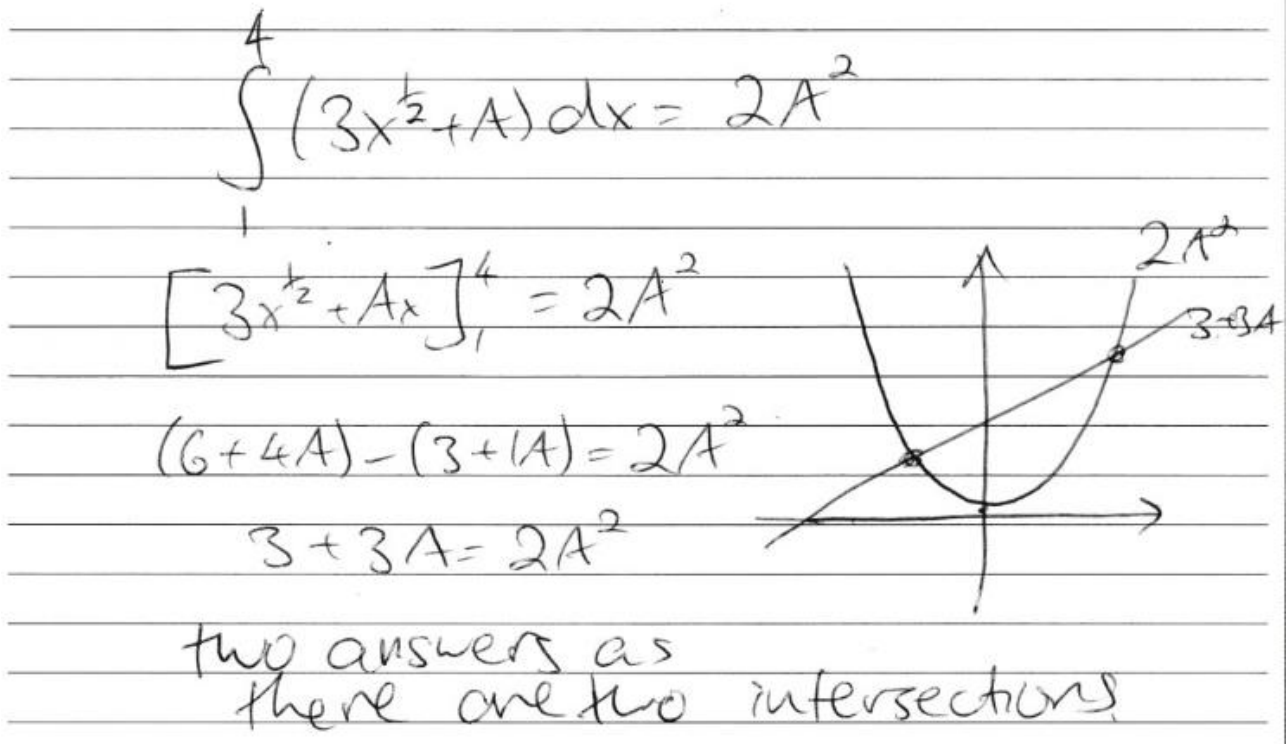 ∫₁⁴ (3x^½ + A) dx = 2A²
[3x^½ + Ax]₁⁴ = 2A²
(6 + 4A) - (3 + 1A) = 2A²
3 + 3A = 2A²
2A²
3+3A
two answers as
there are two intersections